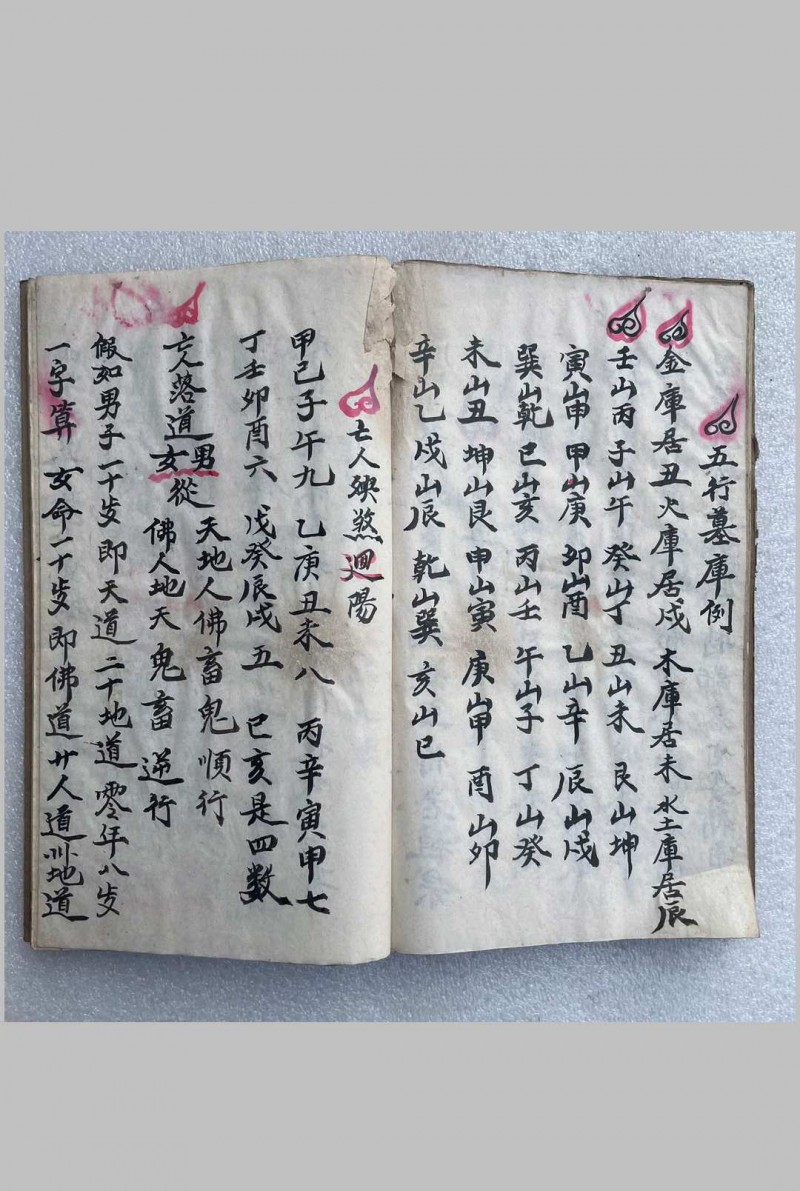 五行墓庫例
金庫居丑 火庫居戍 木庫居未 水土庫居辰
壬山丙 子山午 癸山丁 丑山未 艮山坤
寅山申 甲山庚 卯山酉 乙山辛 辰山戍
巽山乾 巳山亥 丙山壬 午山子 丁山癸
未山丑 坤山艮 申山寅 庚山甲 酉山卯
辛山乙 戍山辰 乾山巽 亥山巳
亡人殃煞迴陽
甲己子午九 乙庚丑未八 丙辛寅申七
丁壬卯酉六 戊癸辰戍五 巳亥是四数
亡人落道 男女從 天地人佛畜鬼順行
佛人地天鬼畜逆行
假如男子一十岁即天道二十地道零年八岁
一字算 女命一十岁即佛道廿人道卅地道